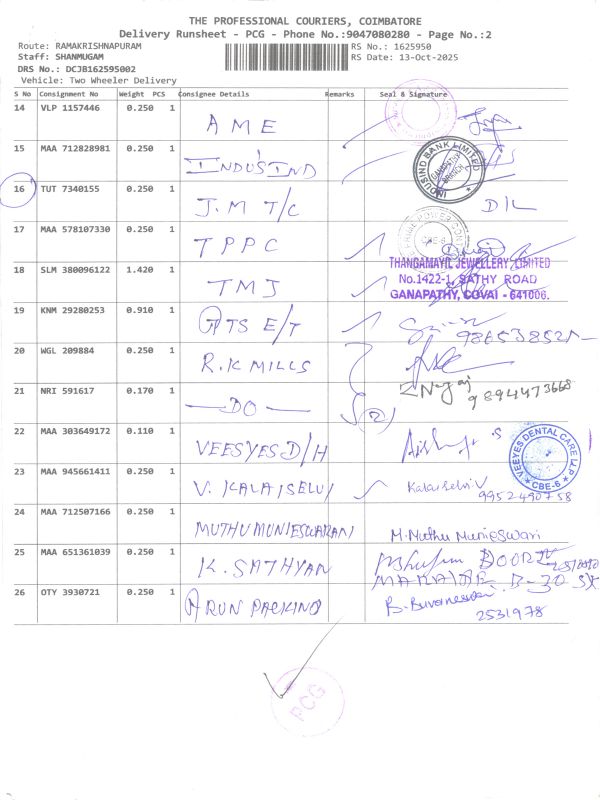 THE PROFESSIONAL COURIERS, COIMBATORE
Delivery Runsheet - PCG - Phone No.:9047080280 - Page No.:2
Route: RAMAKRISHNAPURAM
Staff: SHANMUGAM
DRS No.: DCJB162595002
Vehicle: Two Wheeler Delivery
RS No.: 1625950
RS Date: 13-Oct-2025
S No Consignment No Weight PCS Consignee Details Remarks Seal & Signature
14 VLP 1157446 0.250 1 AME
15 MAA 712828981 0.250 1 INDUSIND
INDUSIND BANK LIMITED
GANAPATHY BRANCH
16 TUT 7340155 0.250 1 J.M T/C D/L
17 MAA 578107330 0.250 1 TPPC
CBE-6
18 SLM 380096122 1.420 1 TMJ
THANGAMAYIL JEWELLERY LIMITED
No.1422-1, SATHY ROAD
GANAPATHY, COVAI - 641006.
19 KNM 29280253 0.910 1 GTS E/T
20 WGL 209884 0.250 1 R.K MILLS
21 NRI 591617 0.170 1 —DO— (2)
Nagaj
9894473668
22 MAA 303649172 0.110 1 VEESYES D/H
VEEYES DENTAL CARE LLP
CBE-6
23 MAA 945661411 0.250 1 V. KALAISELVI Kalaiselvi V
9952490758
24 MAA 712507166 0.250 1 MUTHUMUNIESWARAN M. Muthu Munieswari
25 MAA 651361039 0.250 1 K. SATHYAN
26 OTY 3930721 0.250 1 ARUN PACKING B. Buvaneswari
2531978
PCG